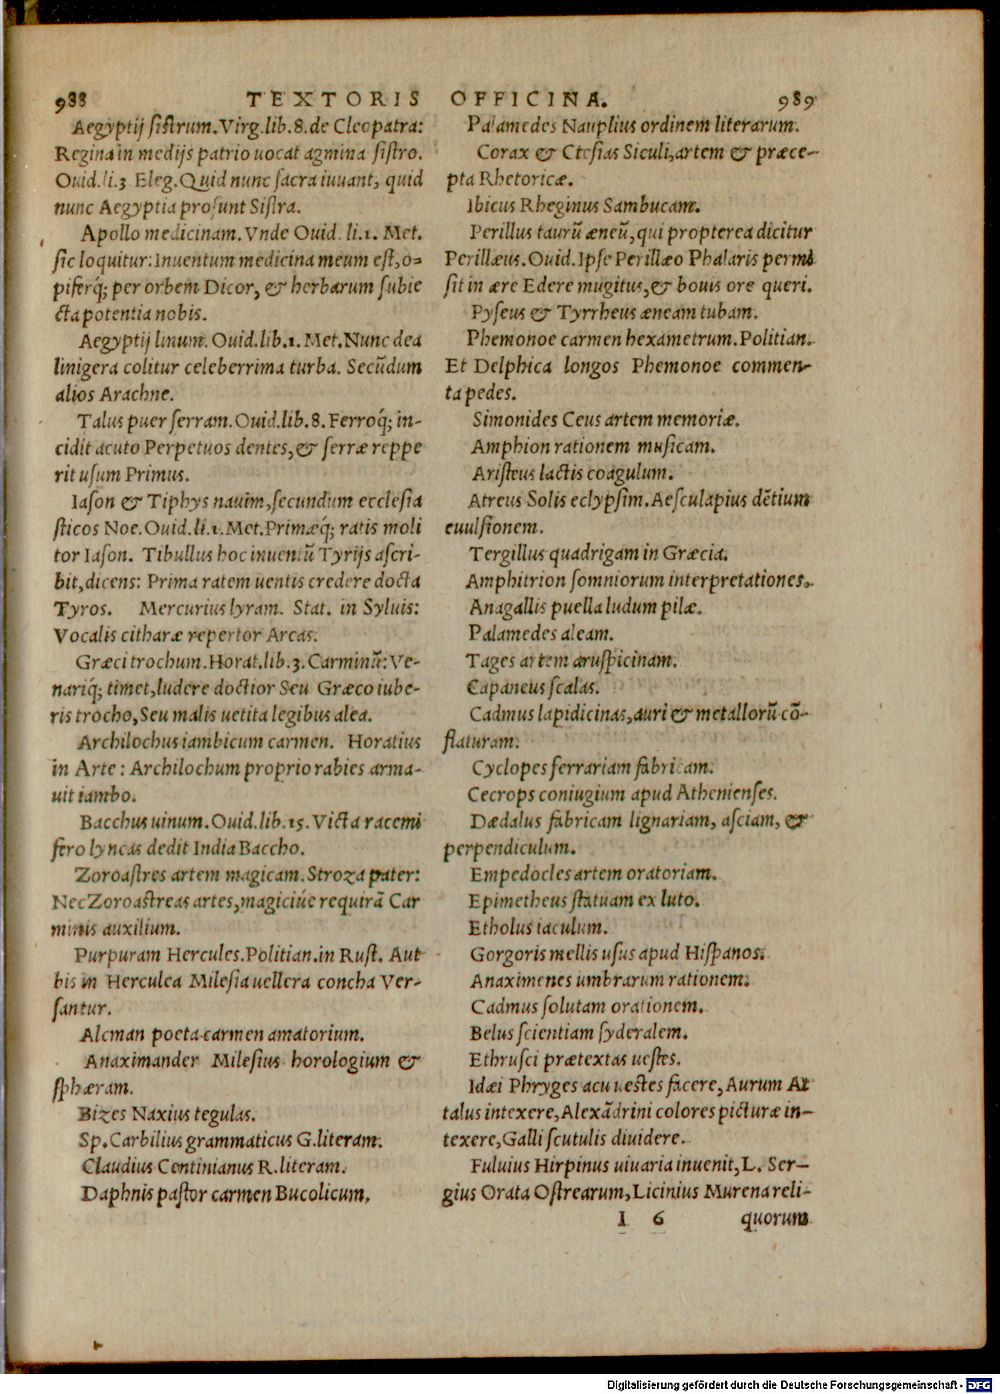 988 TEXTORIS
Aegyptij sistrum. Virg. lib. 8. de Cleopatra:
Regina in medijs patrio uocat agmina sistro.
Ouid. li. 3 Eleg. Quid nunc sacra iuuant, quid
nunc Aegyptia prosunt Sistra.
Apollo medicinam. Vnde Ouid. li. 1. Met.
sic loquitur: Inuentum medicina meum est, o-
piferq́; per orbem Dicor, & herbarum subie
cta potentia nobis.
Aegyptij linum. Ouid. lib. 1. Met. Nunc dea
linigera colitur celeberrima turba. Secũdum
alios Arachne.
Talus puer serram. Ouid. lib. 8. Ferroq́; in-
cidit acuto Perpetuos dentes, & serræ reppe
rit usum Primus.
Iason & Tiphys nauim, secundum ecclesia
sticos Noe. Ouid. li. 1. Met. Primæq́; ratis moli
tor Iason. Tibullus hoc inuentũ Tyrijs ascri-
bit, dicens: Prima ratem uentis credere docta
Tyros. Mercurius lyram. Stat. in Syluis:
Vocalis citharæ repertor Arcas.
Græci trochum. Horat. lib. 3. Carminũ: Ve-
nariq́; timet, ludere doctior Seu Græco iube-
ris trocho, Seu malis uetita legibus alea.
Archilochus iambicum carmen. Horatius
in Arte: Archilochum proprio rabies arma-
uit iambo.
Bacchus uinum. Ouid. lib. 15. Victa racemi
fero lyncas dedit India Baccho.
Zoroastres artem magicam. Stroza pater:
Nec Zoroastreas artes, magiciúe requirã Car
minis auxilium.
Purpuram Hercules. Politian. in Rust. Aut
bis in Herculea Milesia uellera concha Ver-
santur.
Alcman poeta carmen amatorium.
Anaximander Milesius horologium &
sphæram.
Bizes Naxius tegulas.
Sp. Carbilius grammaticus G. literam.
Claudius Centinianus R. literam.
Daphnis pastor carmen Bucolicum,
OFFICINA. 989
Palamedes Nauplius ordinem literarum.
Corax & Ctesias Siculi, artem & præce-
pta Rhetoricæ.
Ibicus Rheginus Sambucam.
Perillus taurũ æneũ, qui propterea dicitur
Perillæus. Ouid. Ipse Perillæo Phalaris permi
sit in ære Edere mugitus, & bouis ore queri.
Pyseus & Tyrrheus æneam tubam.
Phemonoe carmen hexametrum. Politian.
Et Delphica longos Phemonoe commen-
ta pedes.
Simonides Ceus artem memoriæ.
Amphion rationem musicam.
Aristeus lactis coagulum.
Atreus Solis eclypsim. Aesculapius dẽtium
euulsionem.
Tergillus quadrigam in Græcia.
Amphitrion somniorum interpretationes.
Anagallis puella ludum pilæ.
Palamedes aleam.
Tages artem aruspicinam.
Capaneus scalas.
Cadmus lapidicinas, auri & metallorũ cõ-
flaturam.
Cyclopes ferrariam fabricam.
Cecrops coniugium apud Athenienses.
Dædalus fabricam lignariam, asciam, &
perpendiculum.
Empedocles artem oratoriam.
Epimetheus statuam ex luto.
Etholus iaculum.
Gorgoris mellis usus apud Hispanos.
Anaximenes umbrarum rationem.
Cadmus solutam orationem.
Belus scientiam syderalem.
Ethrusci prætextas uestes.
Idæi Phryges acu uestes facere, Aurum At
talus intexere, Alexãdrini colores picturæ in-
texere, Galli scutulis diuidere.
Fuluius Hirpinus uiuaria inuenit, L. Ser-
gius Orata Ostrearum, Licinius Murena reli-
I 6 quorum
Digitalisierung gefördert durch die Deutsche Forschungsgemeinschaft - DFG